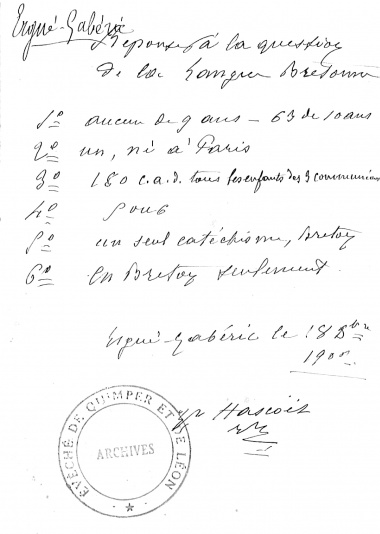 Ergué-Gabéric
Réponses à la question
de la Langue Bretonne
1º aucun de 9 ans – 63 de 10 ans
2º un, né à Paris
3º 180 c.a.d. tous les enfants des 3 communions
4º
5º un seul catéchisme, Breton
6º en Breton seulement.
Ergué-Gabéric le 18 Xbre
190
Hascoët
ÉVÊCHÉ DE QUIMPER ET DE LÉON
ARCHIVES